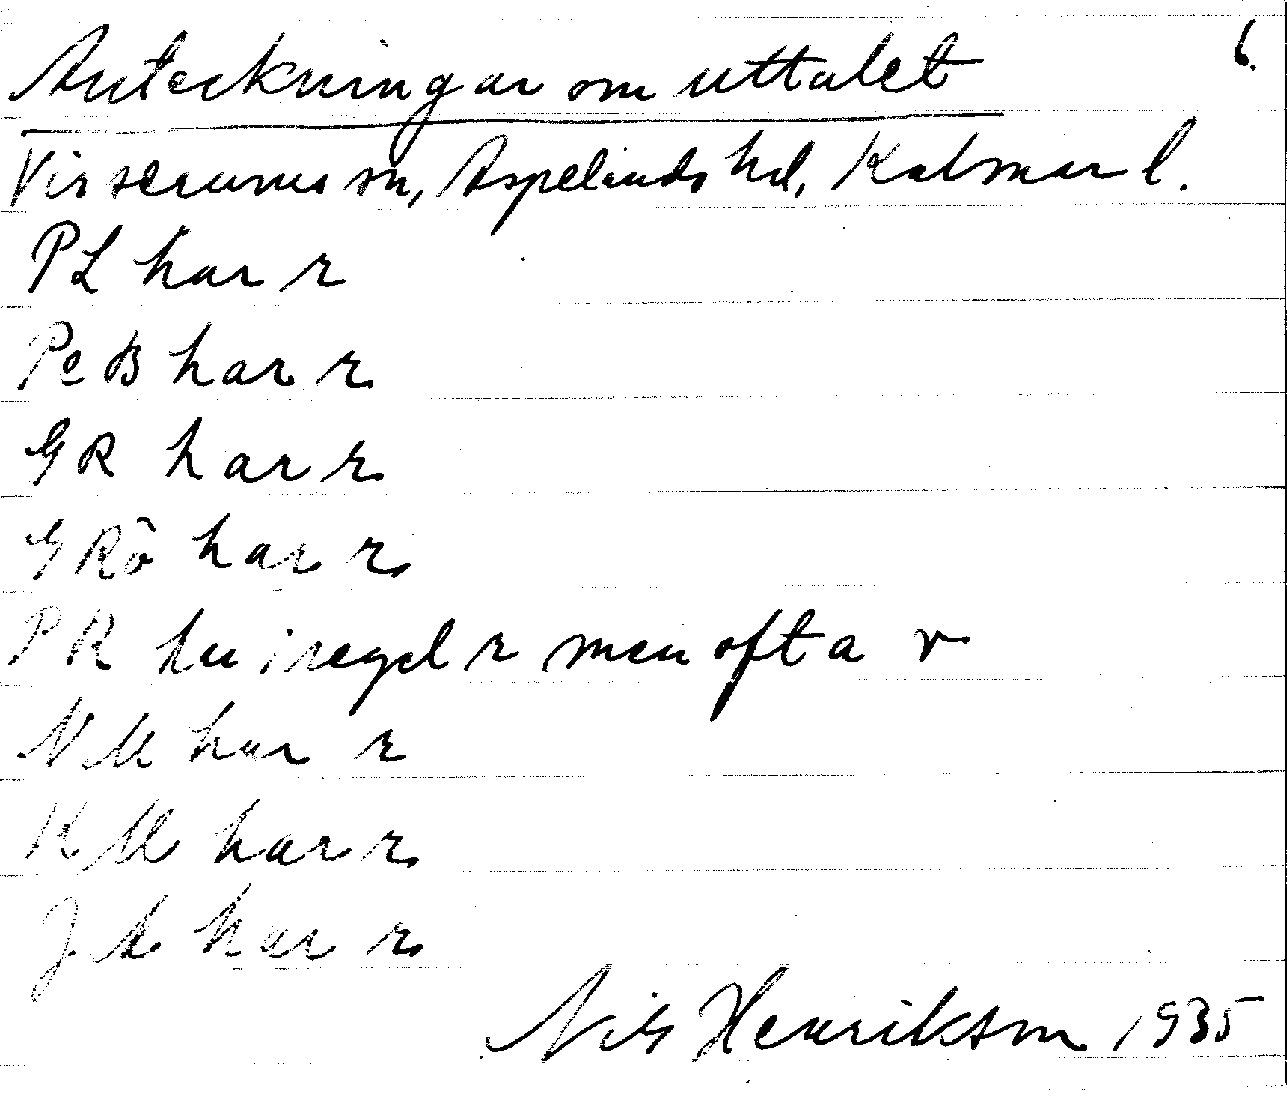 Anteckningar om uttalet 6.
Virserums sn, Aspelands hd, Kalmar l.
PL har r
PeB har r
GR har r
GRö har r
PR har i regel r men ofta r
NM har r
KM har r
JA har r
Nils Henrikson 1935